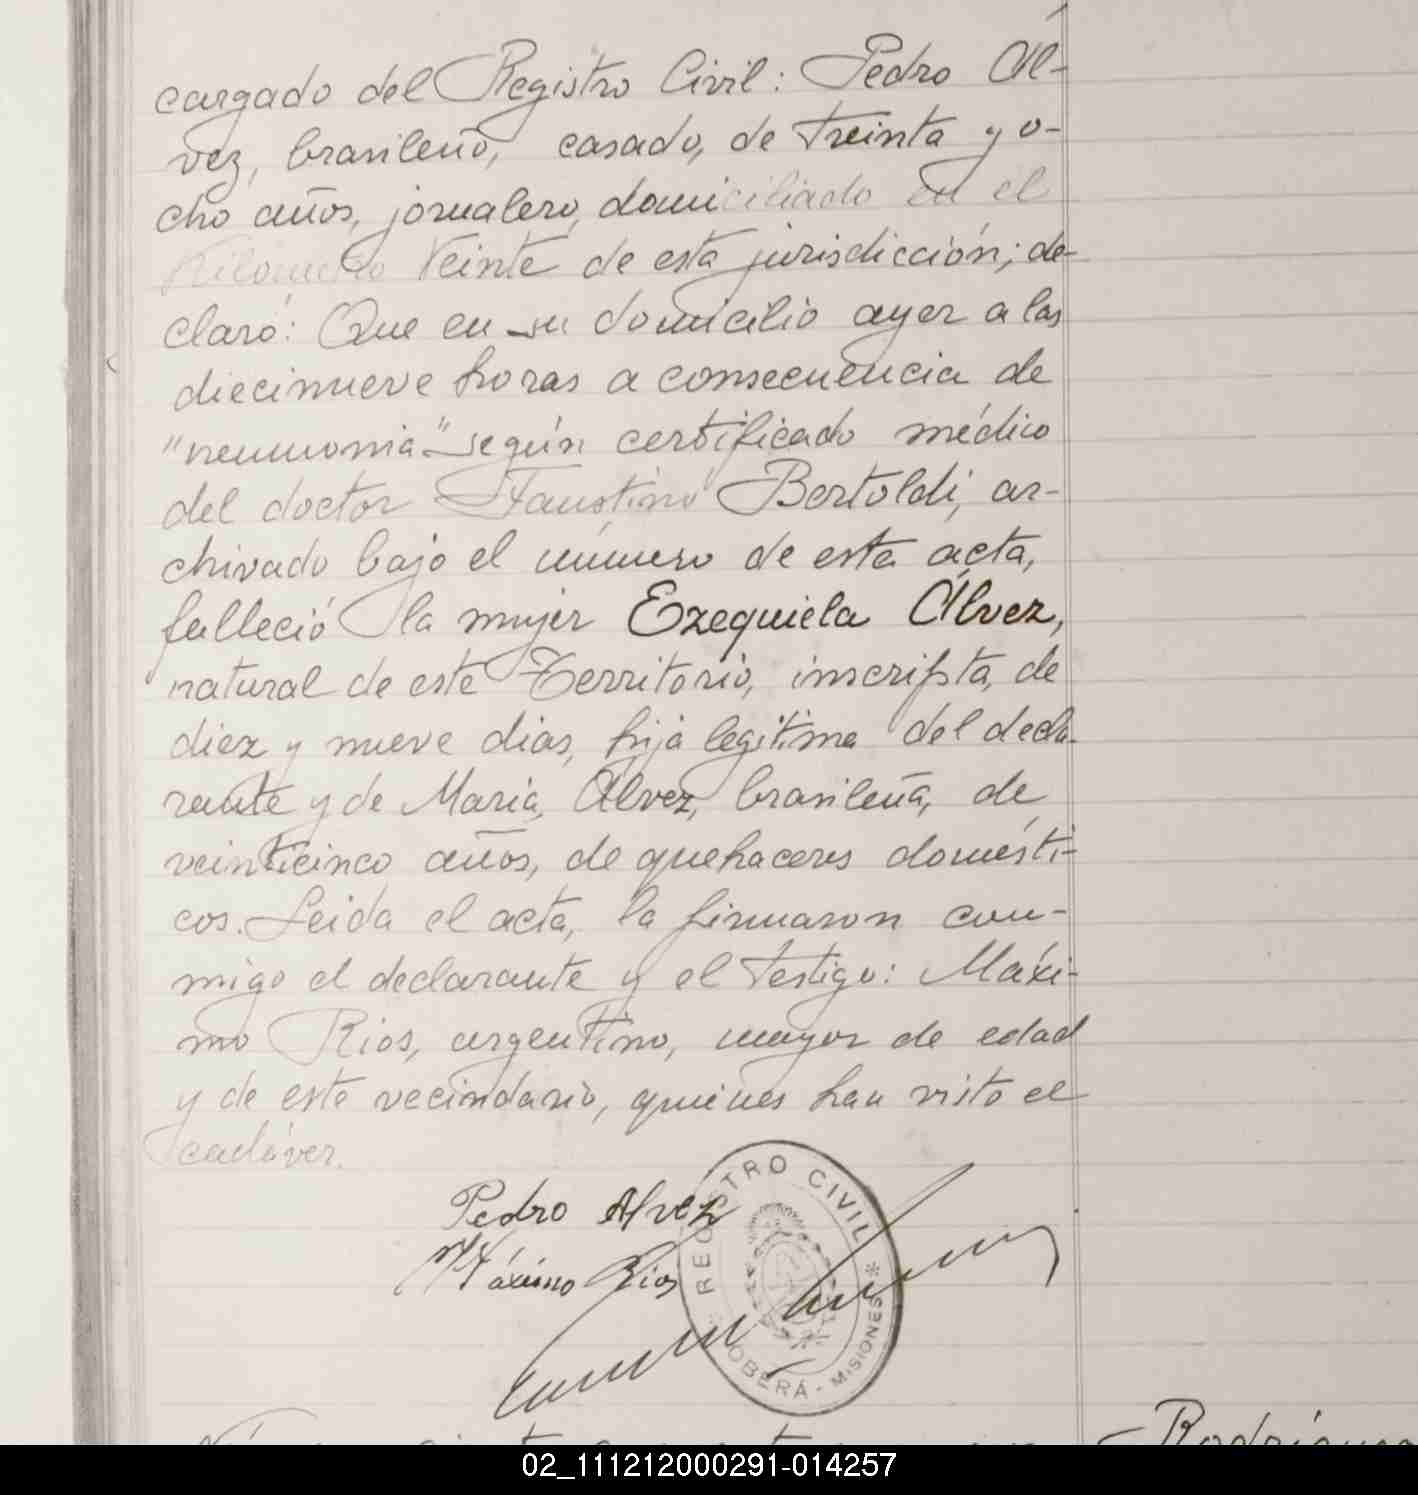 cargado del Registro Civil: Pedro Ál-
vez, brasileño, casado, de treinta y o-
cho años, jornalero, domiciliado en el
Kilómetro Veinte de esta jurisdicción; de-
claró: Que en su domicilio ayer a las
diecinueve horas a consecuencia de
"neumonia" según certificado médico
del doctor Faustino Bertoldi, ar-
chivado bajo el número de esta acta,
falleció la mujer Ezequiela Álvez,
natural de este Territorio, inscripta, de
diez y nueve dias, hija legitima del decla-
rante y de Maria Álvez, brasileña, de
veinticinco años, de quehaceres domésti-
cos. Leida el acta, la firmaron con-
migo el declarante y el testigo: Máxi-
mo Rios, argentino, mayor de edad
y de este vecindario, quienes han visto el
cadáver.
Pedro Alvez
Máximo Rios
REGISTRO CIVIL
OBERÁ - MISIONES
02_111212000291-014257